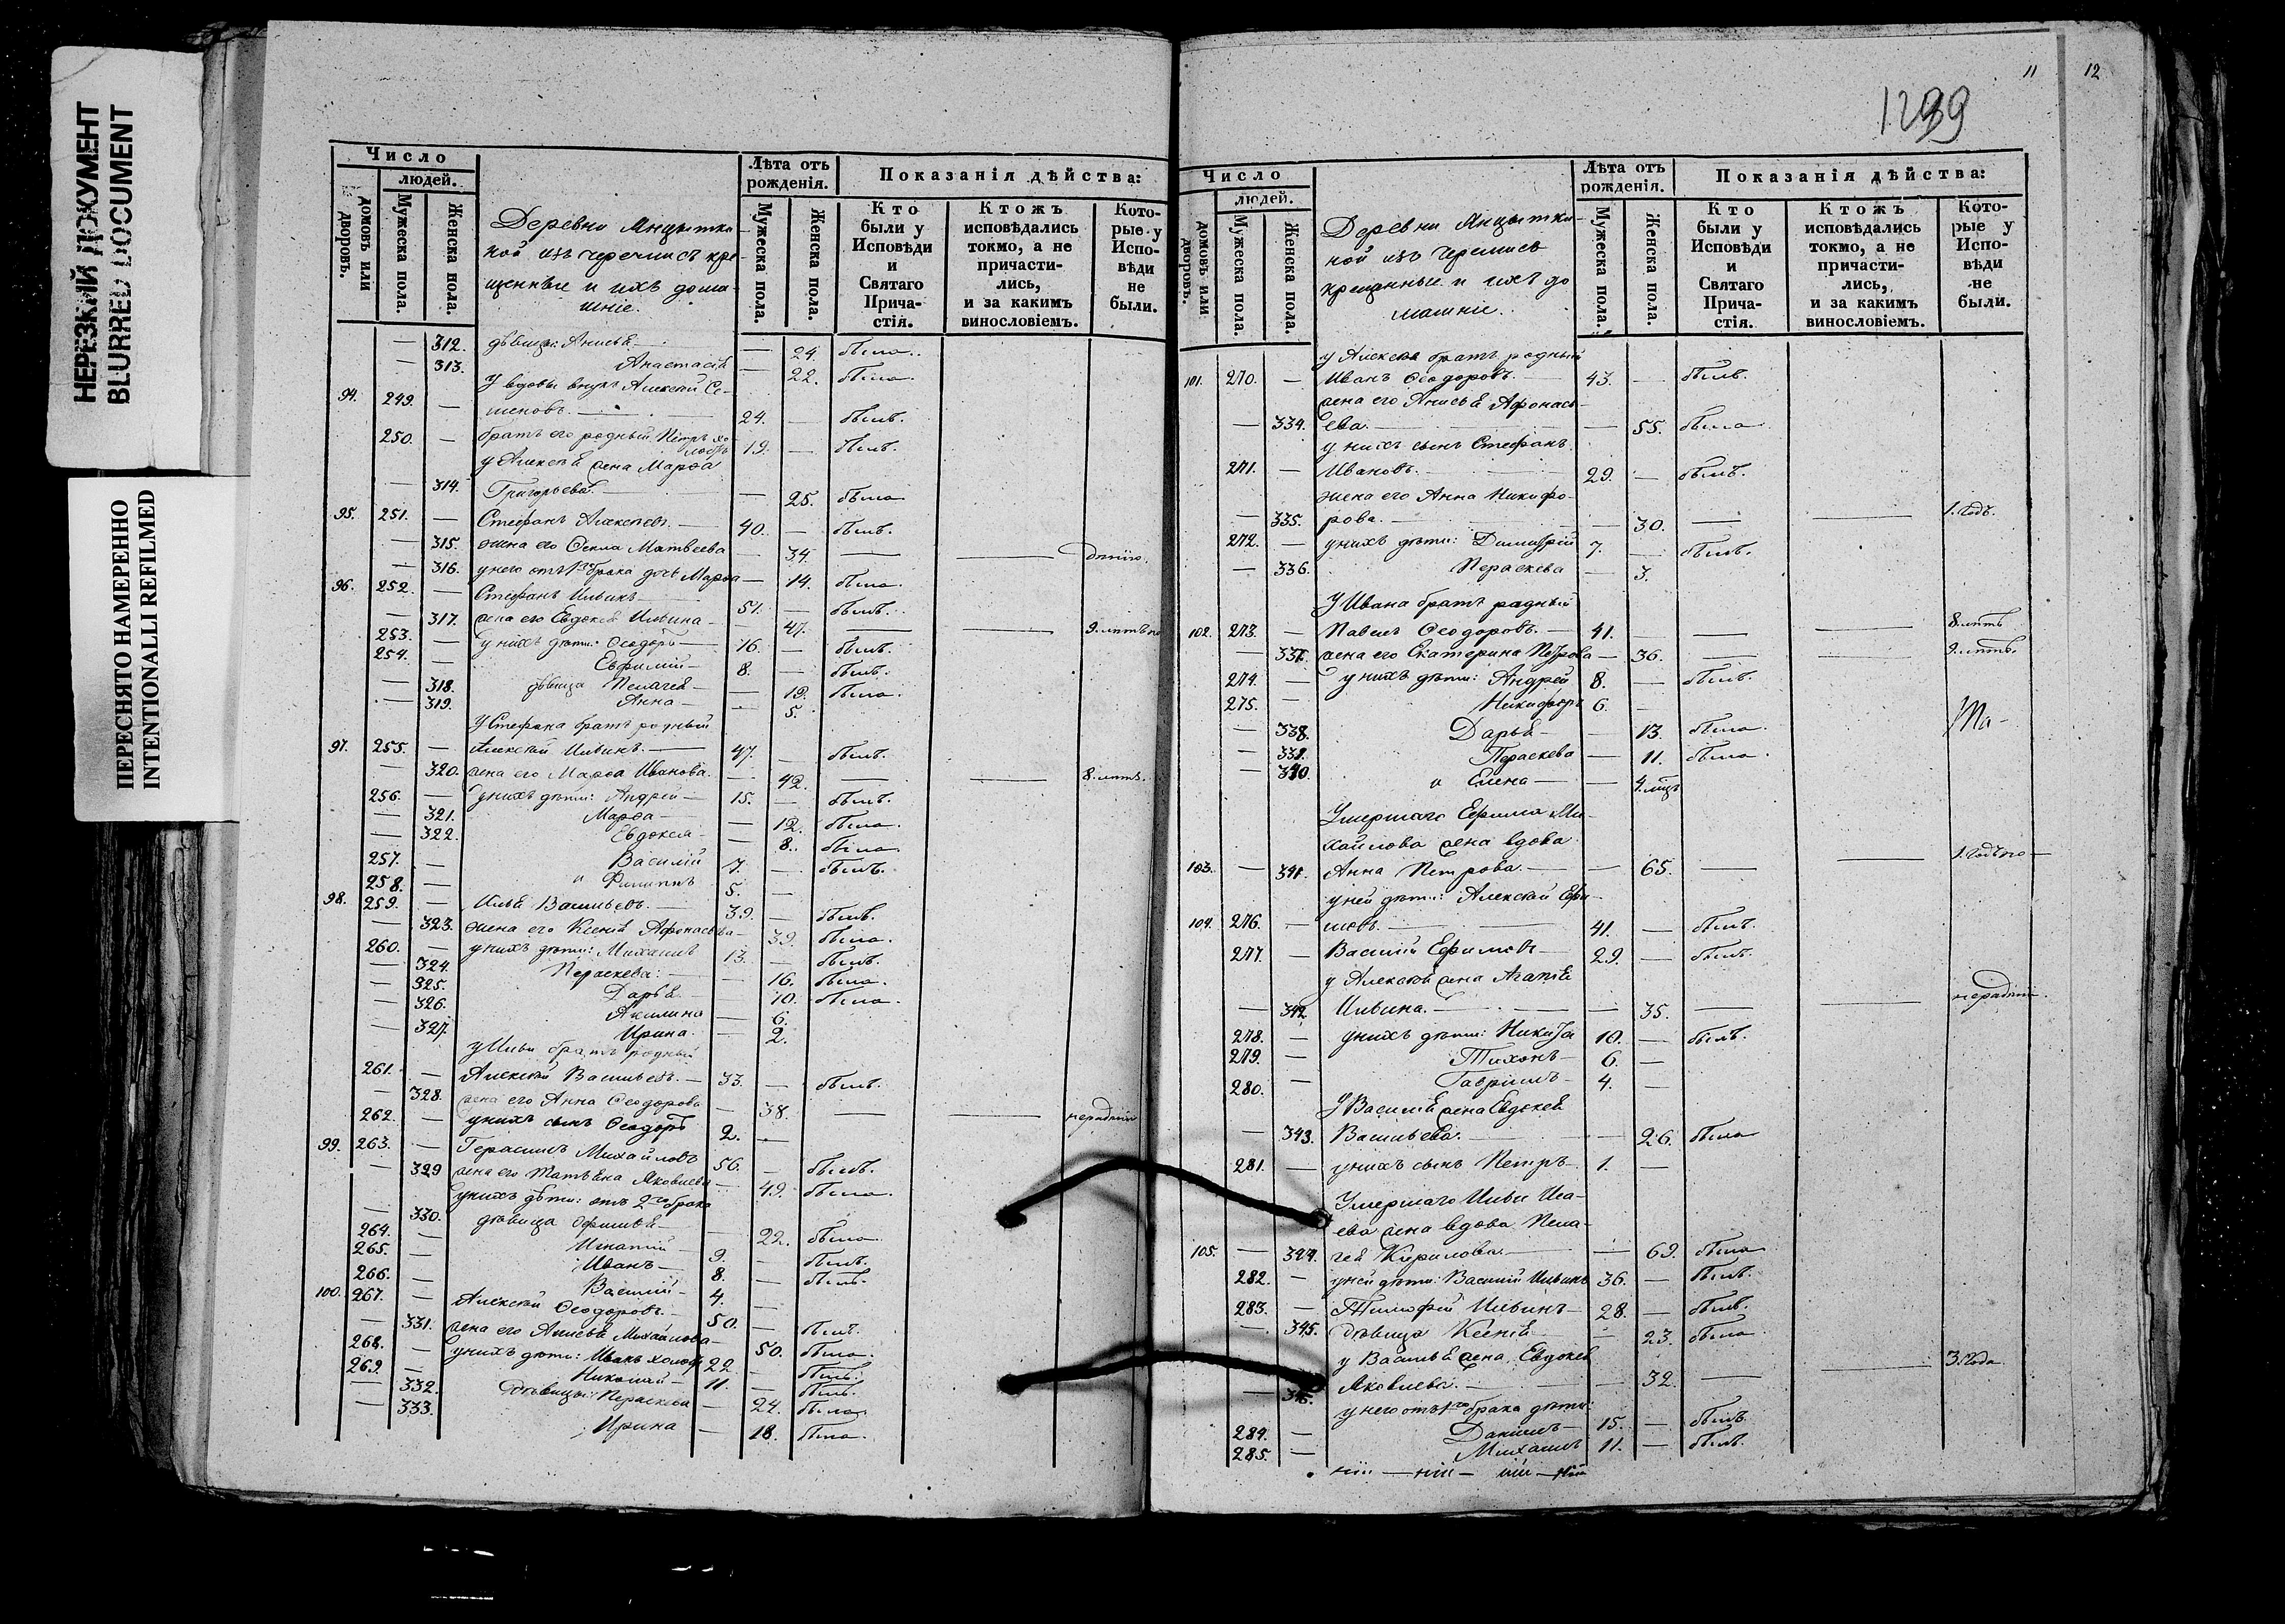 НЕРЕЗКИЙ ДОКУМЕНТ
BLURRED DOCUMENT
ПЕРЕСНЯТО НАМЕРЕННО
INTENTIONALLI REFILMED
Число
людей.
домовъ или дворовъ.
Мужеска пола.
Женска пола.
Деревни
ной изъ черемисъ кре-
щенные и ихъ дома-
шніе.
Лѣта отъ рожденія.
Мужеска пола.
Женска пола.
Показанія дѣйства:
Кто были у Исповѣди и Святаго Прича-стія.
Ктожъ исповѣдались токмо, а не причасти-лись, и за какимъ винословіемъ.
Кото-рые у Испо-вѣди не были.
— 312. дѣвицы: Анисья — 24. была.
— 313. Анастасія — 22. была.
У вдовы внукъ Алексѣй Се-
94. 249. — меновъ — 24. — былъ.
250. — братъ его родный Петръ хо-
лостъ 19. — былъ.
у Алексѣя жена Марѳа
— 314. Григорьева — 25. была
95. 251. — Стефанъ Алексѣевъ. — 40. — былъ.
— 315. жена его Ѳекла Матвеева — 34. — —
— 316. у него отъ 1го брака дочь Марѳа — 14. была.
96. 252. — Стефанъ Ильинъ — 51. — былъ.
— 317. жена его Евдокія Ильина — 47. — — 9. лѣтъ
253. — у нихъ дѣти: Ѳеодоръ 16. — былъ.
254. — Евфимій — 8. — былъ.
— 318. дѣвица Пелагея — 12. была.
— 319. Анна — 5.
У Стефана братъ родный
97. 255. — Алексѣй Ильинъ. — 47. — былъ.
— 320. жена его Марѳа Иванова. — 42. — — 8. лѣтъ.
256. — у нихъ дѣти: Андрей — 15. — былъ.
— 321. Марѳа — 12. была.
— 322. Евдокія — 8. была.
257. — Василій 7. — былъ.
258. — и Филиппъ 5. —
98. 259. — Илья Васильевъ. — 39. — былъ.
— 323. жена его Ксенія Афонасьева — 39. была.
260. — у нихъ дѣти: Михаилъ 13. — былъ.
— 324. Пераскева: — 16. была.
— 325. Дарья — 10. была.
— 326. Акилина — 6.
— 327. Ирина. — 2.
у Ильи братъ родный
261. — Алексѣй Васильевъ. — 33. — былъ.
— 328. жена его Анна Ѳеодорова — 38. — — нерадѣніе
262. — у нихъ сынъ Ѳеодоръ 2. —
99. 263. — Герасимъ Михайловъ 56. — былъ.
— 329 жена его Татьяна Яковлева — 49. была.
у нихъ дѣти: отъ 2го брака
— 330. дѣвица — 22. была
264. — Игнатій — 9. — былъ.
265. — Иванъ — 8. — былъ.
266. — Василій — 4. —
100. 267. — Алексѣй Ѳеодоровъ. — 50. — былъ.
— 331. жена его Анисья Михайлова — 50. была.
268. — у нихъ дѣти: Иванъ холостъ 22 — былъ.
269. — Николай — 11. — былъ.
— 332. дѣвицы: Пераскева — 24. была
— 333. Ирина — 18. была.
11 12
Число
людей.
домовъ или дворовъ.
Мужеска пола.
Женска пола.
Деревни
ной изъ черемисъ
крещенные и ихъ до
машніе.
Лѣта отъ рожденія.
Мужеска пола.
Женска пола.
Показанія дѣйства:
Кто были у Исповѣди и Святаго Прича-стія.
Ктожъ исповѣдались токмо, а не причасти-лись, и за какимъ винословіемъ.
Кото-рые у Испо-вѣди не были.
у Алексѣя братъ родный
101. 270. — Иванъ Ѳеодоровъ. — 43. — былъ.
жена его Анисья Афонась-
— 334. ева. — 55. была
у нихъ сынъ Стефанъ
271. — Ивановъ. — 29. — былъ.
жена его Анна Никифо-
— 335. рова. — 30. — — 1. годъ.
272. — у нихъ дѣти: Димитрій 7. — былъ.
— 336. Пераскева — 3.
У Ивана братъ родный
102. 273. — Павелъ Ѳеодоровъ. — 41. — — — 8. лѣтъ
— 337. жена его Екатерина Петрова — 36. — — 9. лѣтъ.
274. — у нихъ дѣти: Андрей 8. — былъ.
275. — Никифоръ 6. —
— 338. Дарья — 13. была
— 339. Пераскева — 11. была
— 340. и Елена — 4. мѣц
Умершаго Ефима Ми-
хайлова жена вдова
103. — 341. Анна Петрова — 65. — — 1. годъ
у ней дѣти: Алексѣй Ефи-
104. 276. — мовъ. — 41. — былъ.
277. — Василій Ефимовъ — 29. — былъ.
у Алексѣя жена Агапія
— 342 Ильина. — 35. — — нерадѣніе.
278. — у нихъ дѣти: Никита 10. — былъ.
279. — Тихонъ — 6. —
280. — Гавріилъ — 4. —
У Василія жена Евдокія
— 343. Васильева. — 26. была
281. — у нихъ сынъ Петръ 1. —
Умершаго Ильи Иса-
ева жена вдова Пела-
105. — 344. гея Кирилова — 69. была
282. — у ней дѣти: Василій Ильинъ 36. — былъ.
283. — Тимофей Ильинъ — 28. — былъ.
— 345. дѣвица Ксенія — 23. была
у Василья жена Евдокія
— 346. Яковлева. — 32. — — 3. года
у него отъ 1го брака дѣти:
284. — Даніилъ — 15. — былъ.
285. — Михаилъ 11. — былъ.